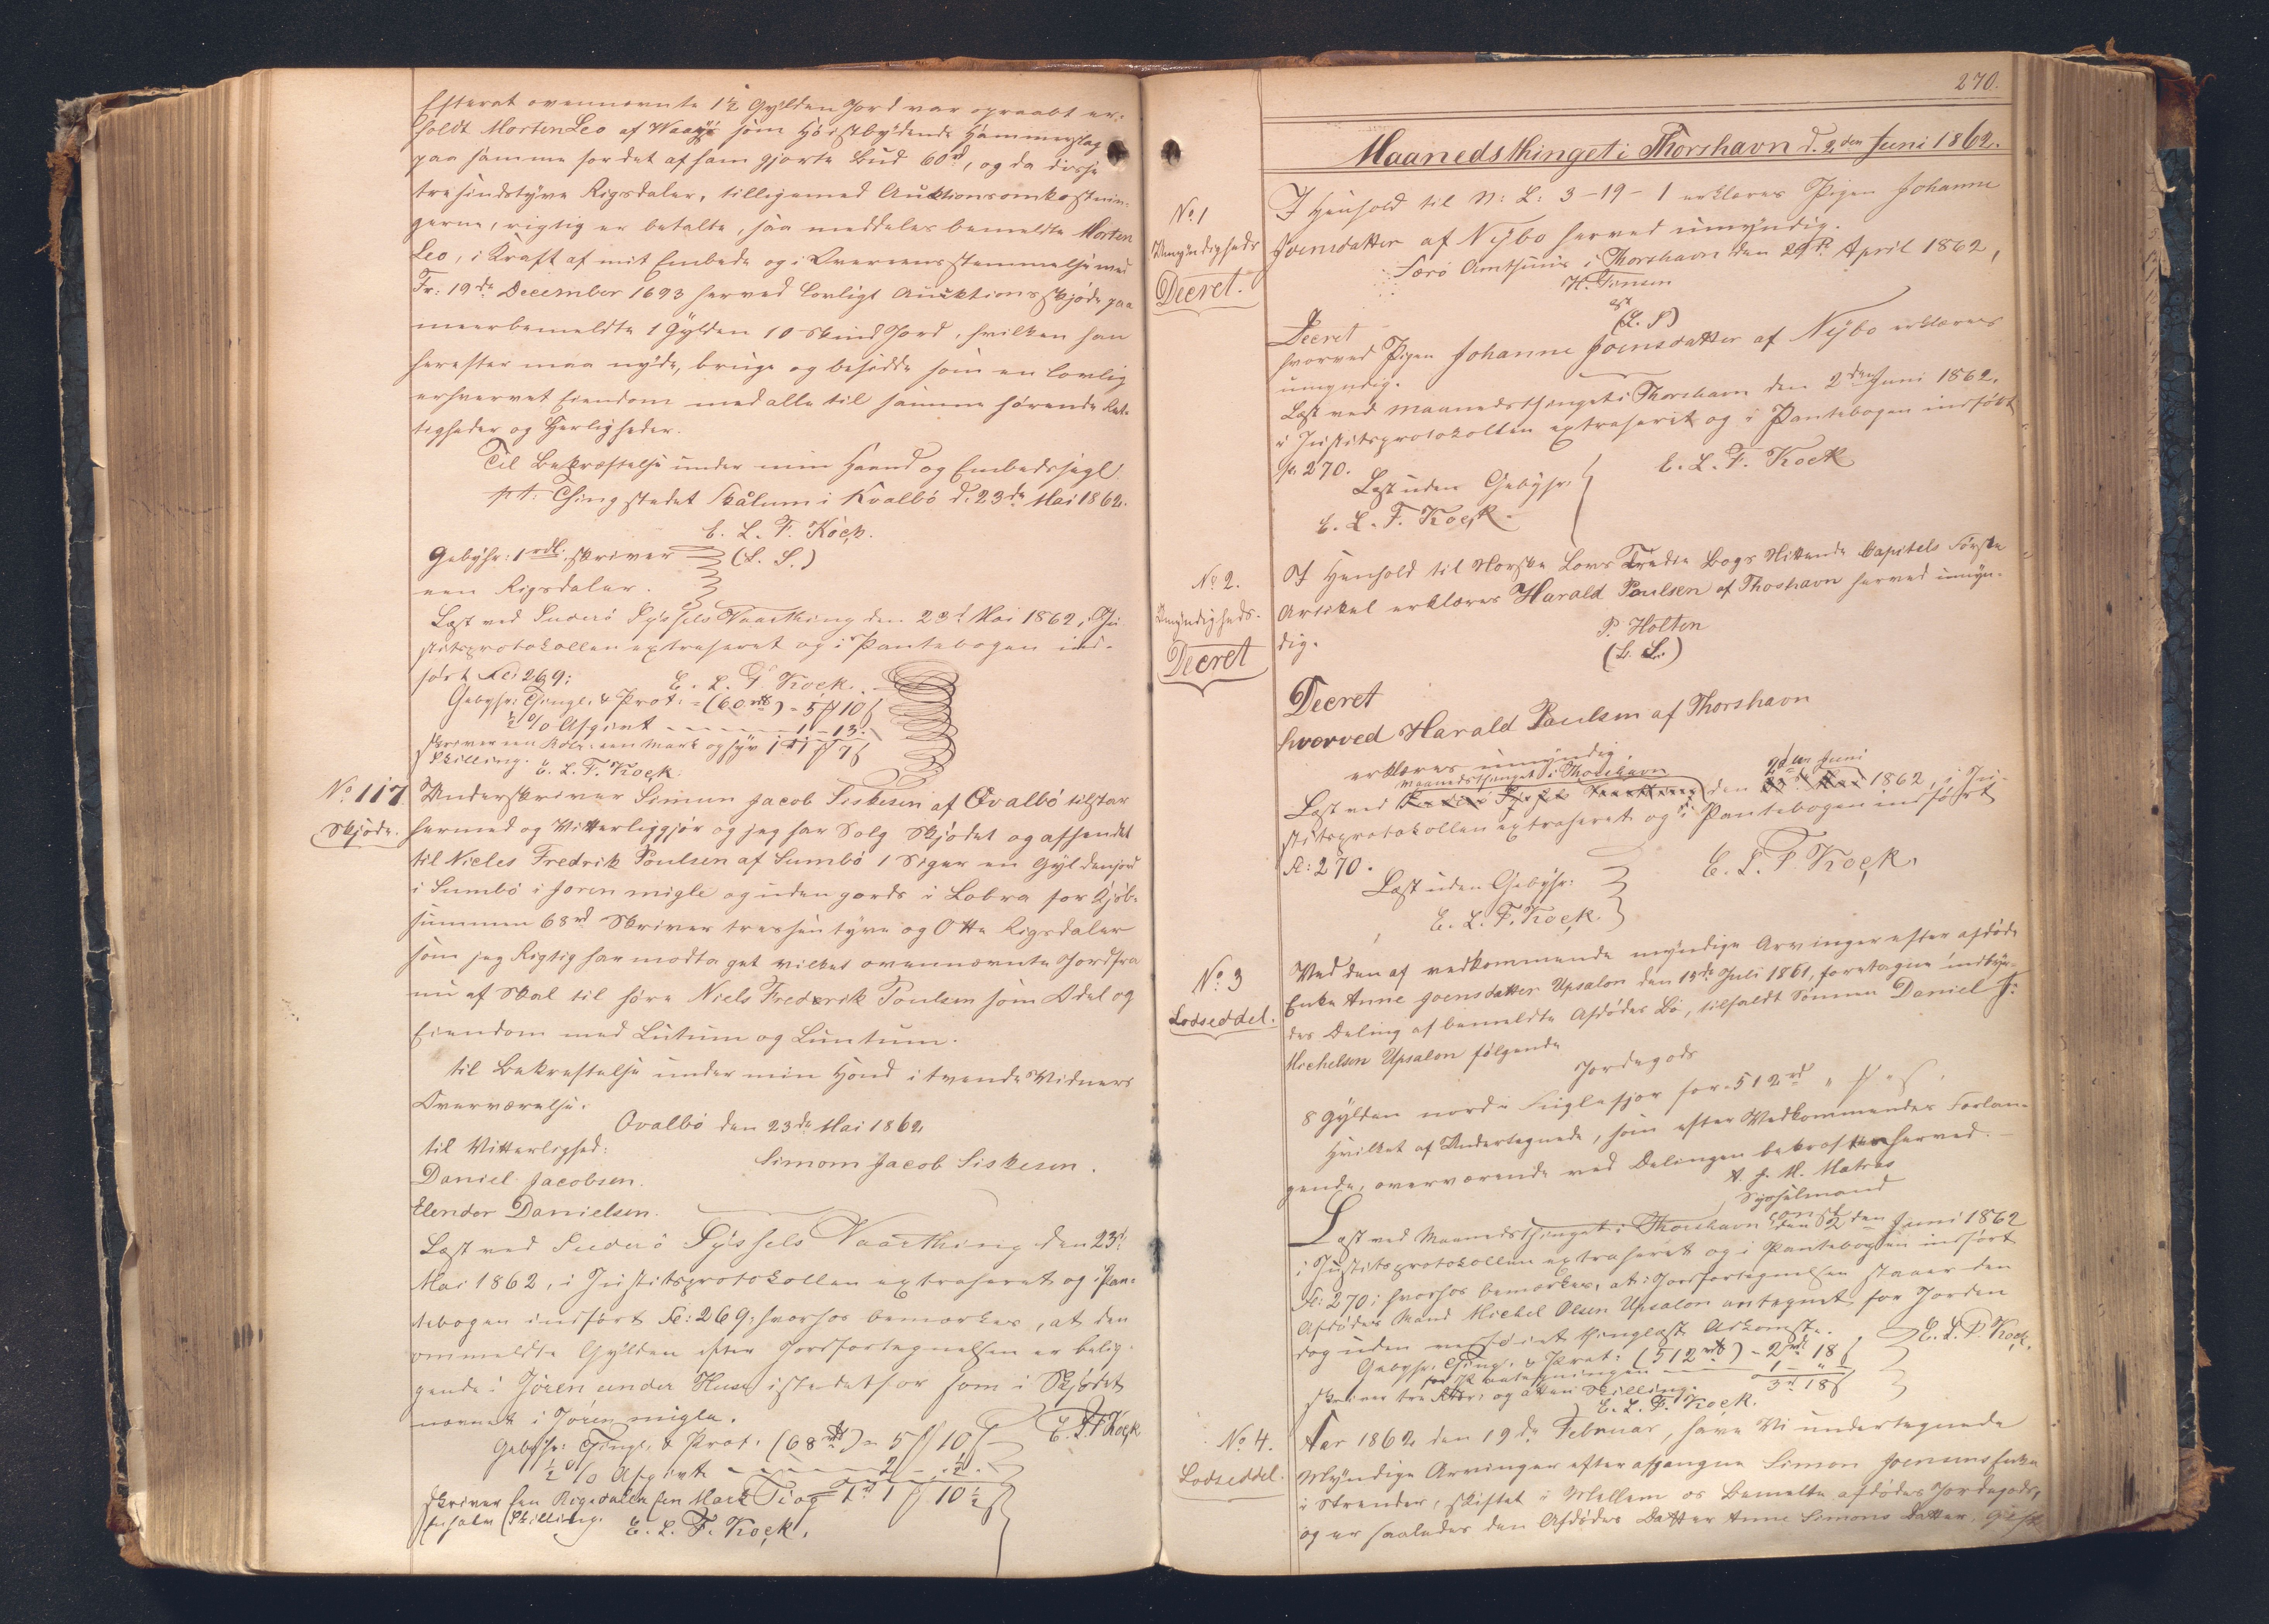 Efterat ovennævnte 1½ Gylden Jord var opraabt er-
holdt Morten Leo af Waag's som Höistbydende Hammerslag
paa samme for det af ham gjorte Bud 60rd, og da disse
tresindstyve Rigsdaler, tilligemed Auktionsomkostnin-
gerne, rigtig er betalte, saa meddeles bemeldte Morten
Leo, i Kraft af mit Embede og i Overeensstemmelse med
Fr: 19de December 1693 herved lovligt Auktionsskjöde paa
meerbemeldte 1 Gylden 10 Skind Jord, hvilken han
herefter maa nyde, bruge og besidde som en lovlig
erhvervet Eiendom med alle til samme hörende Ret-
tigheder og Herligheder.
Til Bekræftelse under min Haand og Embedssegl.
pt. Thingstedet Skålum i Kvalbö d. 23de Mai 1862.
E. L. F. Kock.
Gebyhr: 1 rdl. skriver (L. S.)
een Rigsdaler.
Læst ved Suderö Syssels Vaarthing den 23d Mai 1862, Ju-
stitsprotokollen extraheret og i Pantebogen ind-
fört Fol 269;
E. L. F. Kock.
Gebyhr: Thingl. & Prot. = (60 rd) = 5 ℳ 10 ß
½ % Afgivt - - - - - 1 - 13 -
skriver een Rdlr. een Mark og syv 1 rd 1 ℳ 7 ß
Skilling. E. L. F. Kock.
No 117 Underskriver Simun Jacob Siskesen af Qvalbö tilstaar
Skjöde. hermed og Vitterliggjör og jeg har Solg Skjödet og afhendet
til Nicles Fredrik Poulsen af Sumbö 1 Siger en Gyldenjord
i Sumbö i Joren migle og uden gards i Lobra for Kjöb-
summen 68rd Skriver tresentyve og Otte Rigsdaler
som jeg Rigtig har modtaget vilket ovennævnte Jord fra
nu af Skal til höre Niels Frederik Poulsen som Odel og
Eiendom med Lutum og Luntum.
til Bekræftelse under min Hond i tvende Vidners
Overværelse.
Qvalbö den 23de Mai 1862
til Vitterlighed:
Simom Jacob Siskesen.
Daniel Jacobsen.
Elendor Danielsen.
Læst ved Suderö Syssels Vaarthing den 23d
Mai 1862, i Justitsprotokollen extraheret og i Pan-
tebogen indfört Fol: 269; hvorhos bemærkes, at den
ommeldte Gylden efter Jordfortegnelsen er belig-
gende i Jören under Huse istedetfor som i Skjödet
nævnet i Jören migle.
E. L. F. Kock
Gebyhr: Thingl. & Prot. (68 rd) = 5 ℳ 10 ß
½ % Afgivt - - - - 2 - ½ -
skriver een Rigsdaler een Mark Ti og 1 rd 1 ℳ 10 ½ ß
en halv Skilling. E. L. F. Kock.
270.
Maanedsthinget i Thorshavn d. 2den Juni 1862.
No 1 I Henhold til N: L: 3-19-1 erklæres Pigen Johanne
Umyndigheds Joensdatter af Nÿbo herved umyndig.
Decret. Færö Amthuus i Thorshavn den 29de April 1862,
H. Tensen
cst
(L. S)
Decret
hvorved Pigen Johanne Joensdatter af Nÿbo erklæres
umyndig.
Læst ved Maanedsthinget i Thorshavn den 2den Juni 1862.
i Justitsprotokollen extraherit og i Pantebogen indfört
Fo. 270.
E. L. F. Kock
Læst uden Gebyhr.
E. L. F. Kock.
No 2. I Henhold til Norske Lovs Tredie Bogs Nittende Capitels Förste
Umyndigheds- Artikel erklæres Harald Poulsen af Thoshavn herved umyn-
Decret dig.
P. Holten
(L. S.)
Decret
hvorved Harald Poulsen af Thorshavn
erklæres umyndig.
Læst ved Maanedsthinget i Thorshavn den 2den Juni 1862, i Ju-
stitsprotokollen extraheret og i Pantebogen indfört
Fl: 270.
E. L. F. Kock.
Læst uden Gebyhr:
E. L. F. Kock.
No 3 Ved den af vedkommende myndige Arvinger efter afdöde
Lodseddel. Enke Anne Joensdatter Upsalon den 15de Juli 1861, foretagne indbyr-
des Deling af bemeldte Afdödes Bo, tilfaldt Sönnen Daniel J:
Michelsen Upsalon fölgende
Jordegods
8 Gylden nord i Fuglefjor for = 512rd " ℳ " ß.
Hvilket af Undertegnede, som efter Vedkommendes Forlan-
gende, overværende ved Delingen bekræftes herved.
A. J. M. Matras
Sysselmand
const
Læst ved Maanedsthinget i Thorshavn den 2den Juni 1862
i Justitsprotokollen extraheret og i Pantebogen indfört
Fl: 270; hvorhos bemærkes, at i Jordfortegnelsen staaer den
Afdödes Mand Michel Olsen Upsalon antegnet for Jorden
dog uden vedföiet thinglæst Adkomst.
E. L. F. Kock.
Gebyhr: Thingl. & Prot: (512 rd) = 2 rd 18 ß
for Paategningen - - - - 1 - " -
skriver tre Rdlr. og atten Skilling. 3 rd 18 ß
E. L. F. Kock.
No 4. Aar 1862 den 19de Februar, have Vi undertegnede
Lodseddel. Myndige Arvinger efter afgangne Simon Joensens Enke
i Strender, skiftet i Mellem os Bemelte afdödes Jordegods,
og er saaledes den Afdödes Datter Anne Simons Datter, Gift